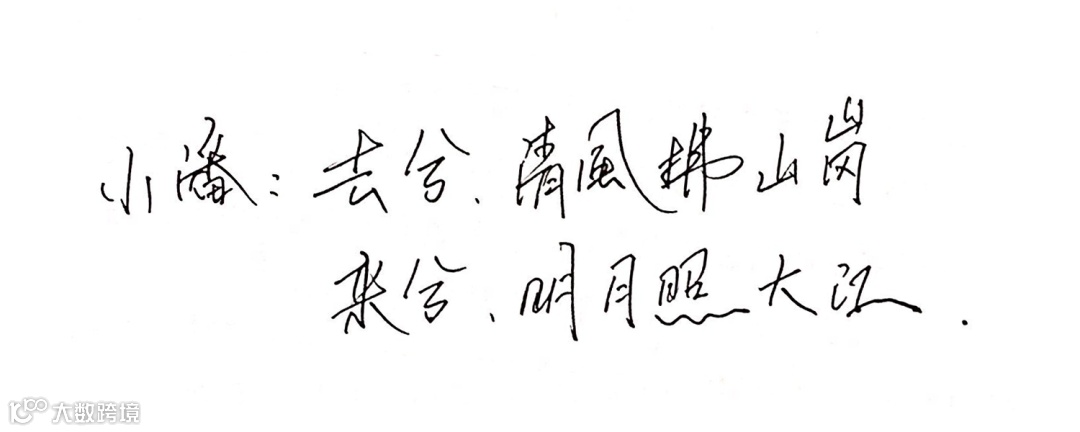 小潘：去兮、清風拂山岗
来兮、明月照大江.
大数跨境